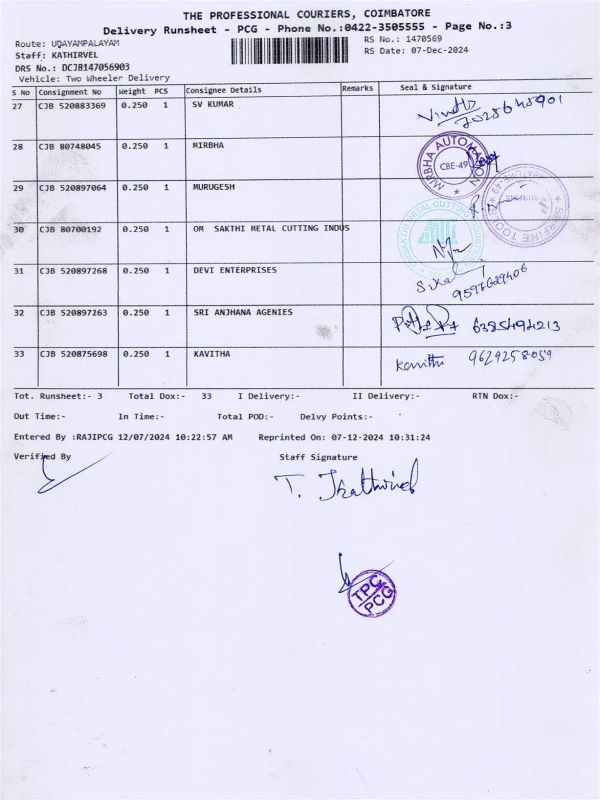 THE PROFESSIONAL COURIERS, COIMBATORE
Delivery Runsheet - PCG - Phone No.:0422-3505555 - Page No.:3
Route: UDAYAMPALAYAM
RS No.: 1470569
Staff: KATHIRVEL
RS Date: 07-Dec-2024
DRS No.: DCJB147056903
Vehicle: Two Wheeler Delivery
S No Consignment No Weight PCS Consignee Details Remarks Seal & Signature
27 CJB 520883369 0.250 1 SV KUMAR
28 CJB 80748045 0.250 1 MIRBHA
MIRBHA AUTOMATION CBE-49
29 CJB 520897064 0.250 1 MURUGESH
SURFINE TOOLS
30 CJB 80700192 0.250 1 OM SAKTHI METAL CUTTING INDUS
31 CJB 520897268 0.250 1 DEVI ENTERPRISES
32 CJB 520897263 0.250 1 SRI ANJHANA AGENIES 6385494213
33 CJB 520875698 0.250 1 KAVITHA Kavitha 9629258059
Tot. Runsheet:- 3 Total Dox:- 33 I Delivery:- II Delivery:- RTN Dox:-
Out Time:- In Time:- Total POD:- Delvy Points:-
Entered By :RAJIPCG 12/07/2024 10:22:57 AM Reprinted On: 07-12-2024 10:31:24
Verified By Staff Signature
TPC
PCG